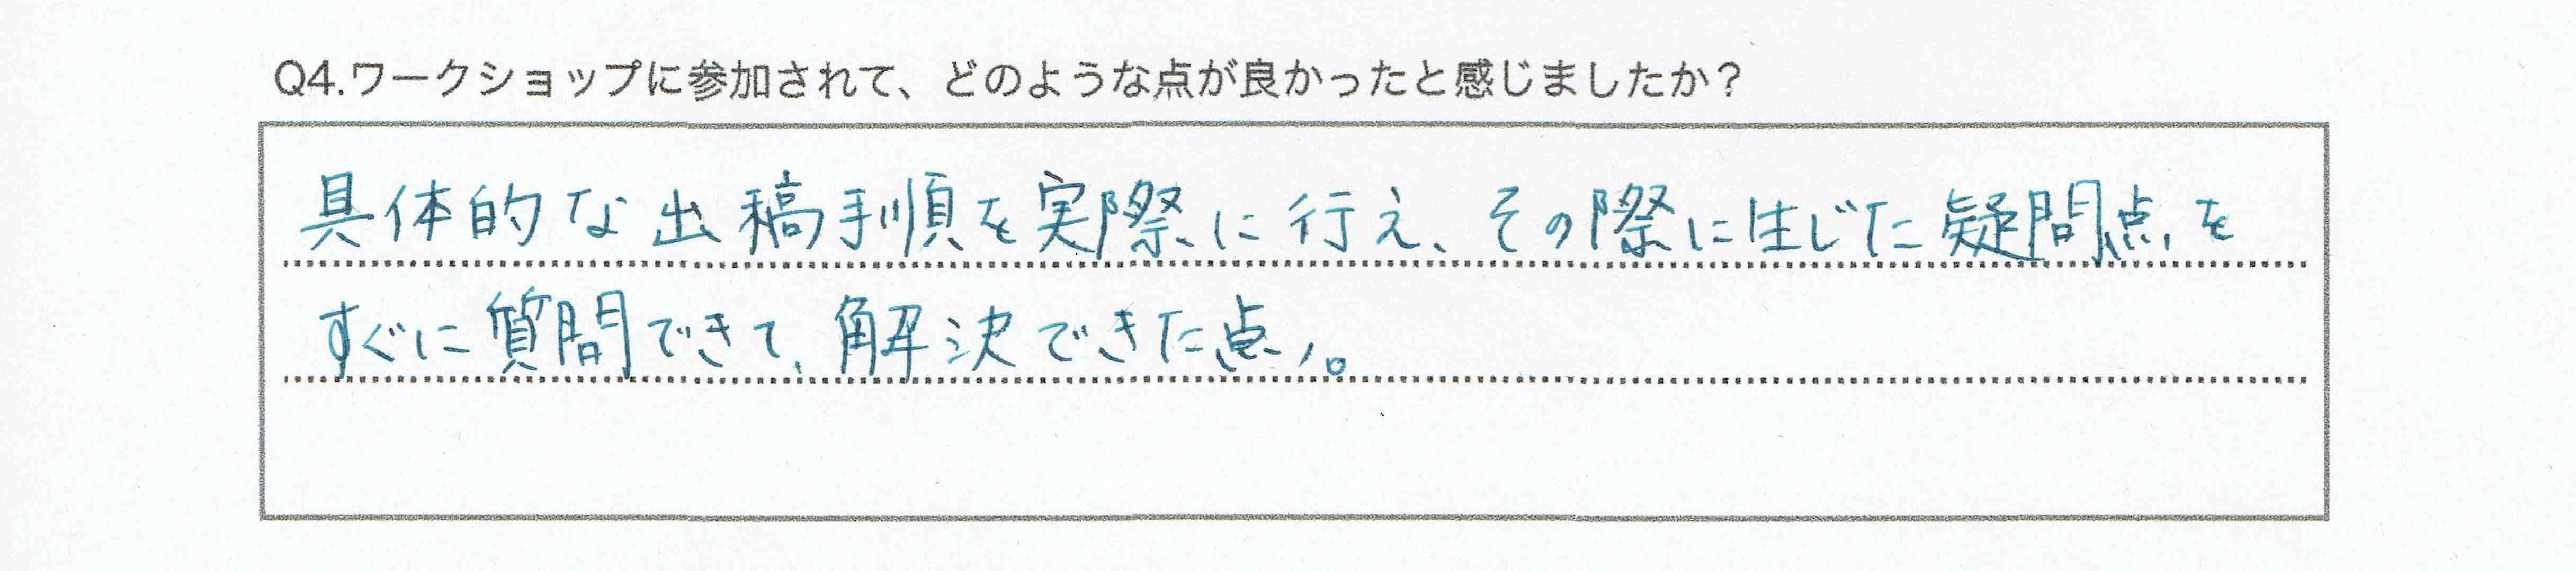 Q4.ワークショップに参加されて、どのような点が良かったと感じましたか？
具体的な出稿手順を実際に行え、その際に生じた疑問点を
すぐに質問できて、解決できた点。